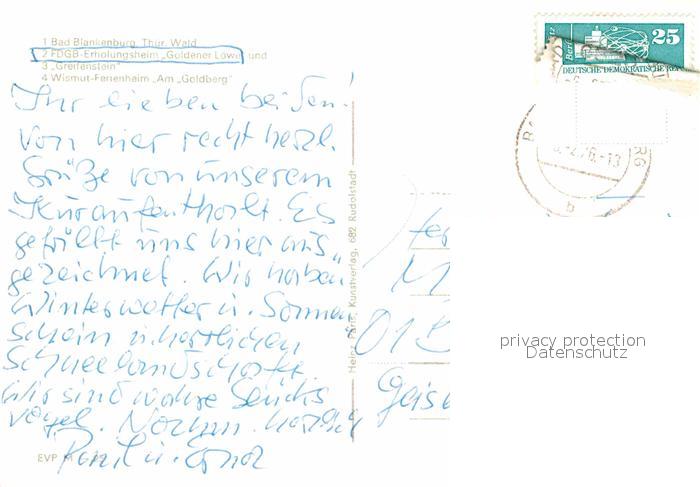 1 Bad Blankenburg, Thür. Wald
2 FDGB-Erholungsheim „Goldener Löwe" und
3 „Greifenstein"
4 Wismut-Ferienheim „Am „Goldberg"
Ihr lieben beiden!
von hier recht herzl.
Grüße von unserem
Kuraufenthalt. Es
gefällt uns hier aus„
gezeichnet. Wir haben
Winterwetter u. Sonnen
schein u. herrlichen
Schneelandschaft.
Wir sind wahre Glücks
vögel. Nochm. herzlich
u.
EVP M
Heinz Paris, Kunstverlag, 682 Rudolstadt
25
Berlin
DEUTSCHE DEMOKRATISCHE REP
.2.76.-13
b
M
01
Geis
privacy protection
Datenschutz